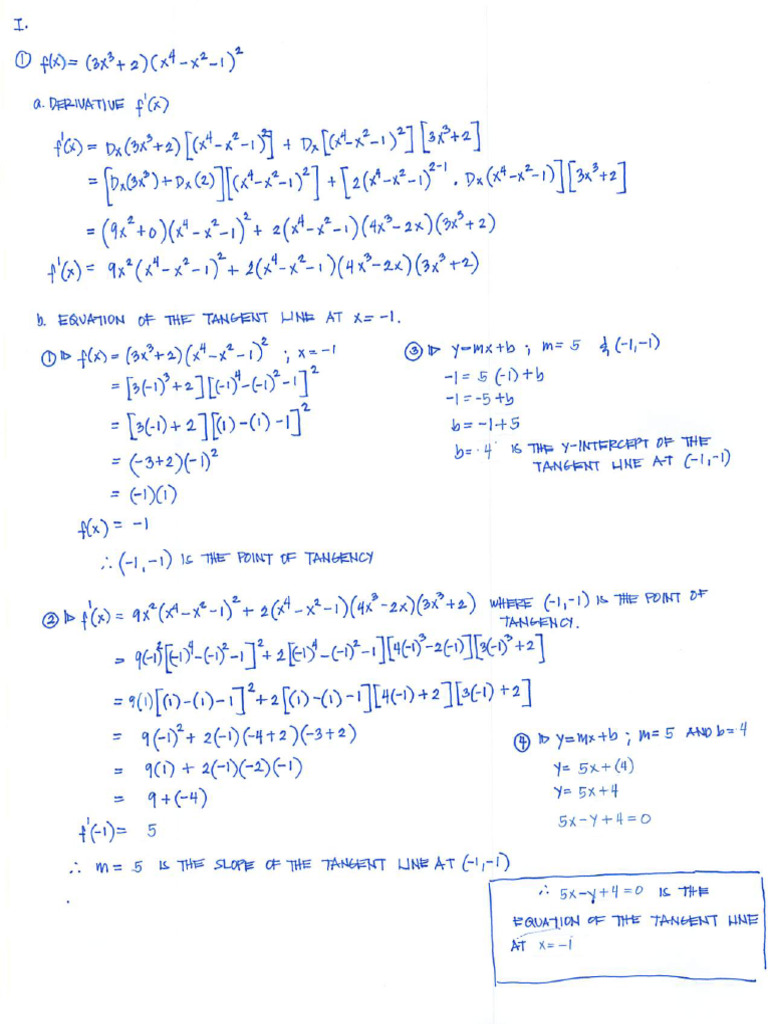 I.
① f(x) = (3x³+2)(x⁴-x²-1)²
a. DERIVATIVE f'(x)
f'(x) = Dx(3x³+2)[(x⁴-x²-1)²] + Dx[(x⁴-x²-1)²][3x³+2]
= [Dx(3x³)+Dx(2)][(x⁴-x²-1)²] + [2(x⁴-x²-1)²⁻¹ · Dx(x⁴-x²-1)][3x³+2]
= (9x²+0)(x⁴-x²-1)² + 2(x⁴-x²-1)(4x³-2x)(3x³+2)
f'(x) = 9x²(x⁴-x²-1)² + 2(x⁴-x²-1)(4x³-2x)(3x³+2)
b. EQUATION OF THE TANGENT LINE AT x=-1.
① ▷ f(x) = (3x³+2)(x⁴-x²-1)² ; x=-1
= [3(-1)³+2][(-1)⁴-(-1)²-1]²
= [3(-1)+2][(1)-(1)-1]²
= (-3+2)(-1)²
= (-1)(1)
f(x) = -1
∴ (-1,-1) IS THE POINT OF TANGENCY
③ ▷ y=mx+b ; m=5 & (-1,-1)
-1 = 5(-1)+b
-1 = -5+b
b = -1+5
b = 4 IS THE Y-INTERCEPT OF THE
TANGENT LINE AT (-1,-1)
② ▷ f'(x) = 9x²(x⁴-x²-1)² + 2(x⁴-x²-1)(4x³-2x)(3x³+2) WHERE (-1,-1) IS THE POINT OF
TANGENCY.
= 9(-1)²[(-1)⁴-(-1)²-1]² + 2[(-1)⁴-(-1)²-1][4(-1)³-2(-1)][3(-1)³+2]
= 9(1)[(1)-(1)-1]² + 2[(1)-(1)-1][4(-1)+2][3(-1)+2]
= 9(-1)² + 2(-1)(-4+2)(-3+2)
= 9(1) + 2(-1)(-2)(-1)
= 9+(-4)
f'(-1) = 5
∴ m = 5 IS THE SLOPE OF THE TANGENT LINE AT (-1,-1)
④ ▷ y=mx+b ; m=5 AND b=4
y= 5x+(4)
y= 5x+4
5x-y+4=0
∴ 5x-y+4=0 IS THE
EQUATION OF THE TANGENT LINE
AT x=-1